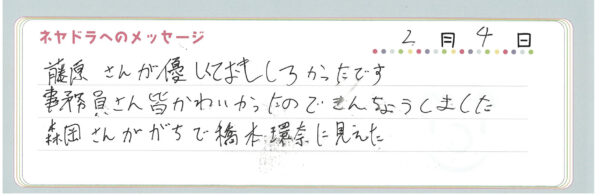 ネヤドラへのメッセージ
2月4日
藤原さんが優しくておもしろかったです
事務員さん皆かわいかったのできんちょうしました
森岡さんががちで橋本環奈に見えた